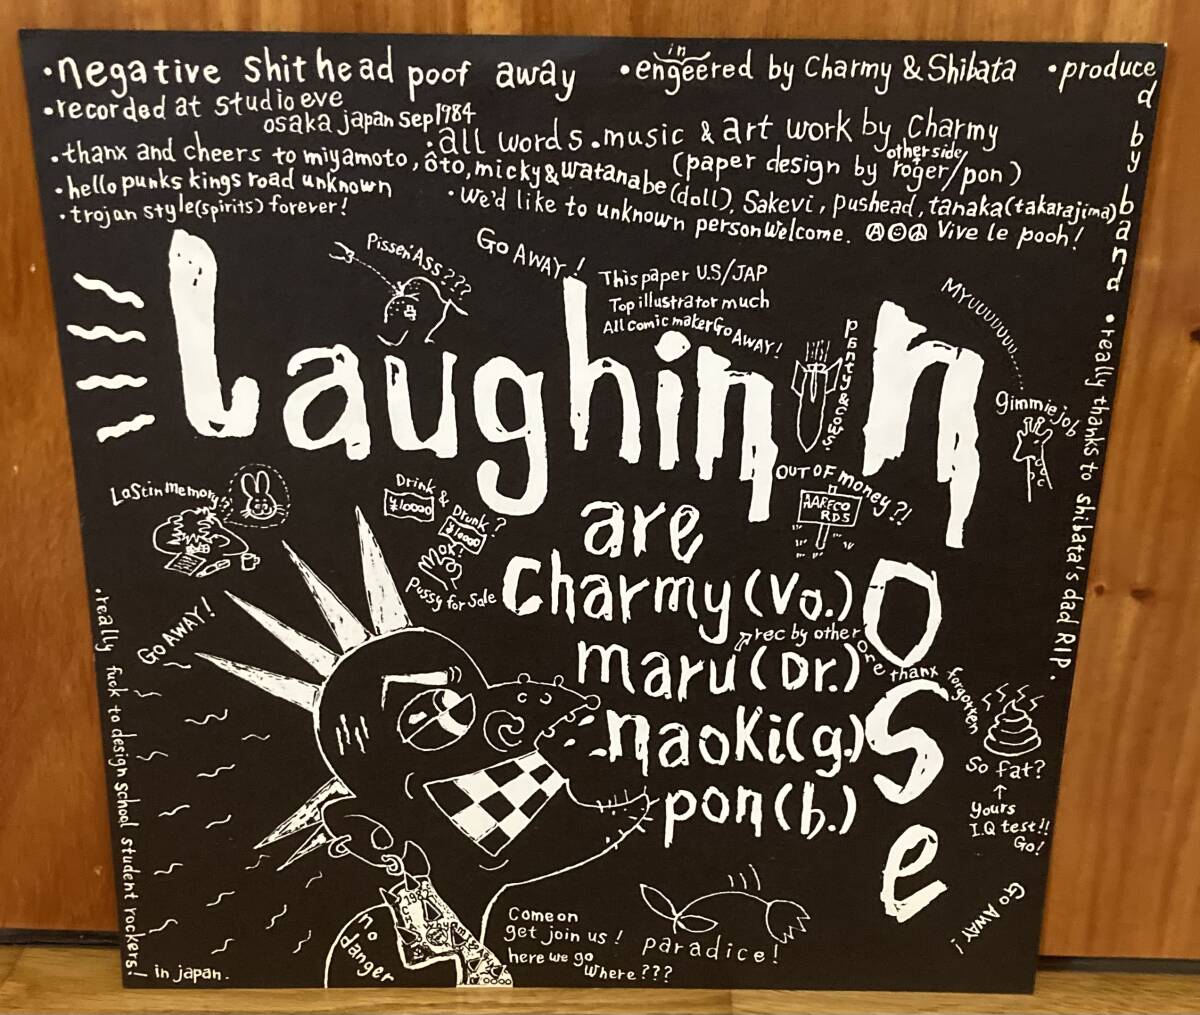 •negative shit head poof away
•engeered by Charmy & Shibata
in
•produced by band
•recorded at studio eve
osaka japan Sep 1984
•all words•music & art work by Charmy
(paper design by roger/pon)
other side
•thanx and cheers to miyamoto, ôto, micky & watanabe (doll), Sakevi, pushead, tanaka (takarajima)
•hello punks kings road unknown
•We'd like to unknown person welcome. Ⓐ©☮ Vive le pooh!
•trojan style (spirits) forever!
•really thanks to shibata's dad R.I.P.
Laughin nose
Pissein'Ass???
GO AWAY!
This paper U.S/JAP
Top illustrator much
All comic maker Go AWAY!
panty & cows.
MYUUUUUUU.......
gimmie job
Last in memory?
Drink & Drunk?
¥10000
¥10000
MoK!
Pussy for Sale
OUT OF money?!
AARECO
RDS
are
Charmy (Vo.)
rec by other
maru (Dr.)
one thanx forgotten
naoki (g.)
pon (b.)
So fat?
↑
yours
I.Q test!!
Go!
GO AWAY!
GO AWAY!
•really fuck to design school student rockers!
in japan.
no
danger
1982
Come on
get join us!
here we go
where???
paradice!